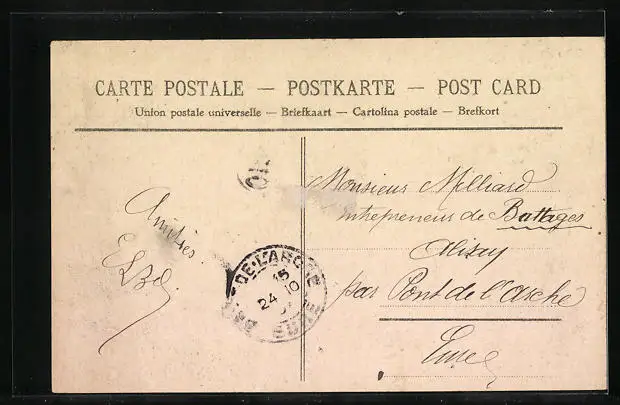 CARTE POSTALE — POSTKARTE — POST CARD
Union postale universelle — Briefkaart — Cartolina postale — Brefkort
Amitiés
Monsieur Milliard
Entrepreneur de Battages
Alizay
par Pont de l'Arche
Eure
DE-L'ARCHE
15
24 10
EURE